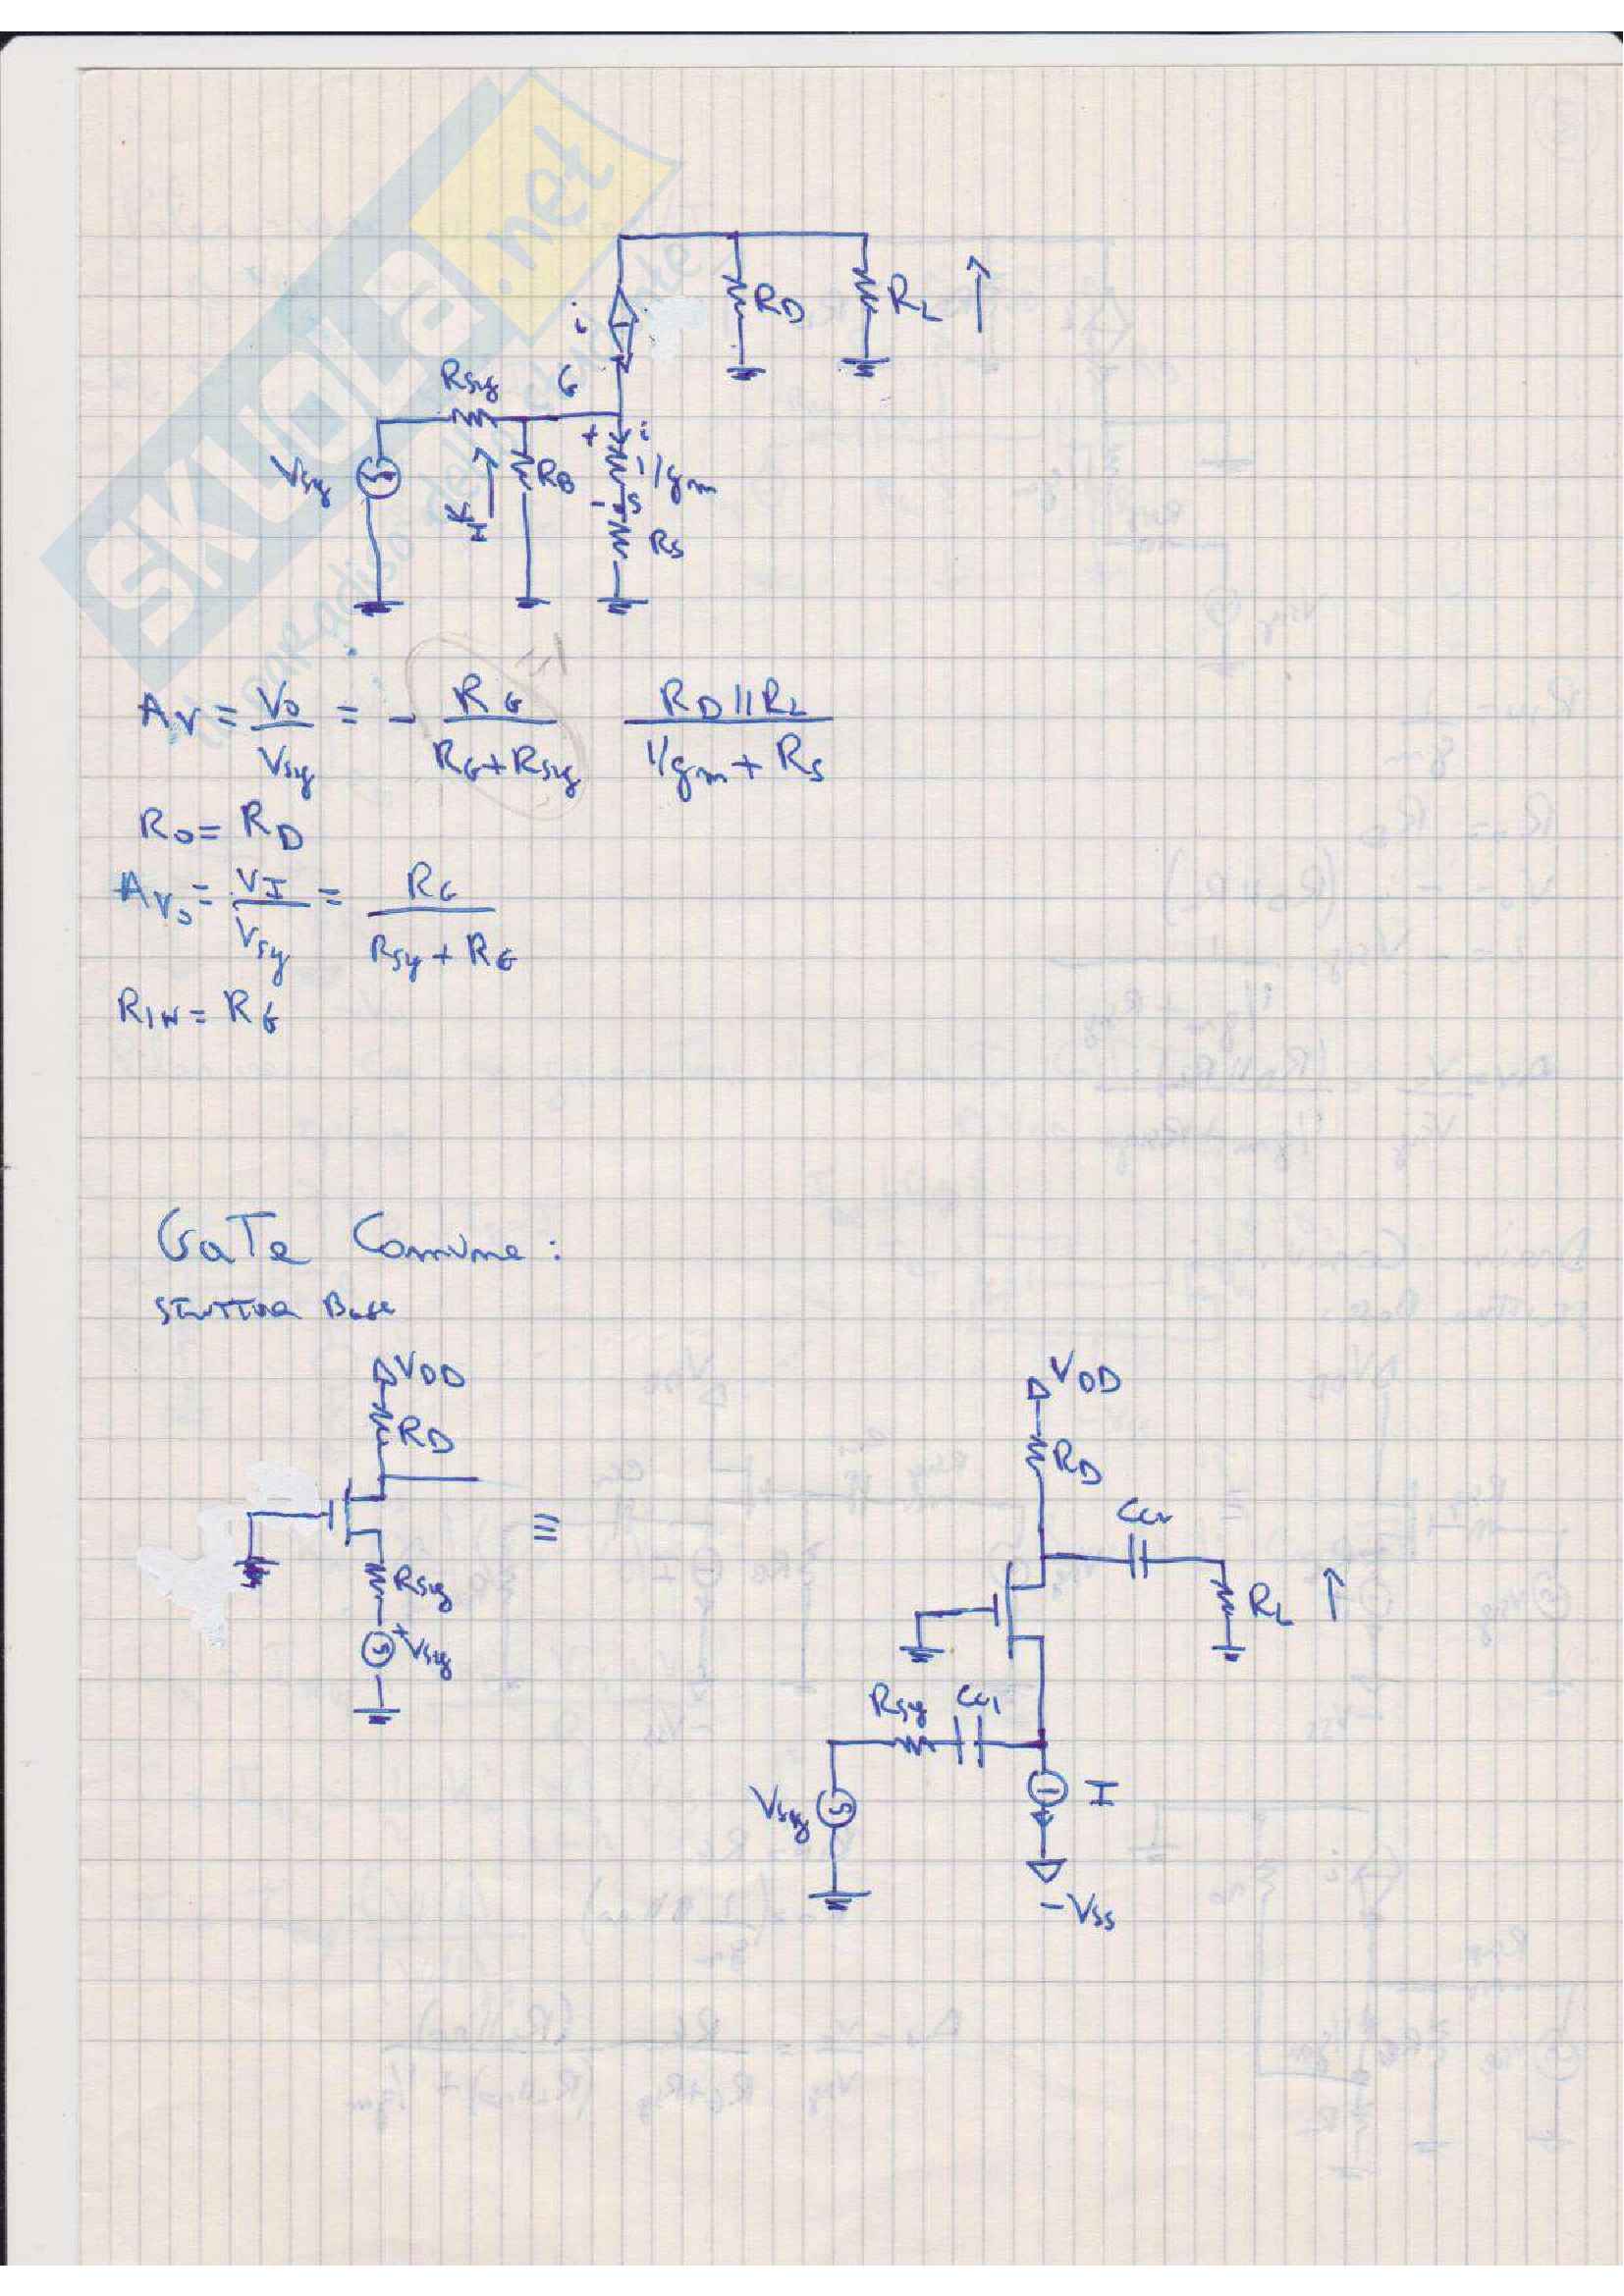 SKUOLA.net
il paradiso dello studente
RD
RL
i
Rsig
G
+ i
Vsig
RG
1/gm
- S
RS
Av = Vo/Vsig = - RG/(RG+Rsig) (RD||RL)/(1/gm + RS)
Ro = RD
Avo = VI/Vsig = RG/(Rsig + RG)
RIN = RG
GaTe Comune:
STRUTTURA Base
VDD
RD
Rsig
+
Vsig
≡
VDD
RD
CC2
RL
Rsig
CC1
Vsig
I
-VSS